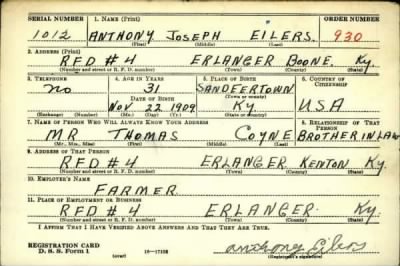 SERIAL NUMBER 1. NAME (Print) ORDER NUMBER
1012 ANTHONY JOSEPH EILERS. 930
(First) (Middle) (Last)
2. ADDRESS (Print)
RFD #4 ERLANGER BOONE. Ky.
(Number and street or R. F. D. number) (Town) (County) (State)
3. TELEPHONE 4. AGE IN YEARS 5. PLACE OF BIRTH 6. COUNTRY OF CITIZENSHIP
no 31 SANDEERTOWN
DATE OF BIRTH (Town or county)
NOV 22 1909 Ky. USA
(Exchange) (Number) (Mo.) (Day) (Yr.) (State or country)
7. NAME OF PERSON WHO WILL ALWAYS KNOW YOUR ADDRESS 8. RELATIONSHIP OF THAT PERSON
MR THOMAS COYNE BROTHER IN LAW
(Mr., Mrs., Miss) (First) (Middle) (Last)
9. ADDRESS OF THAT PERSON
RFD #4 ERLANGER KENTON Ky.
(Number and street or R. F. D. number) (Town) (County) (State)
10. EMPLOYER'S NAME
FARMER
11. PLACE OF EMPLOYMENT OR BUSINESS
RFD #4 ERLANGER. Ky.
(Number and street or R. F. D. number) (Town) (County) (State)
I AFFIRM THAT I HAVE VERIFIED ABOVE ANSWERS AND THAT THEY ARE TRUE.
REGISTRATION CARD
D. S. S. Form 1 (over) Anthony Eilers
(Registrant's signature)